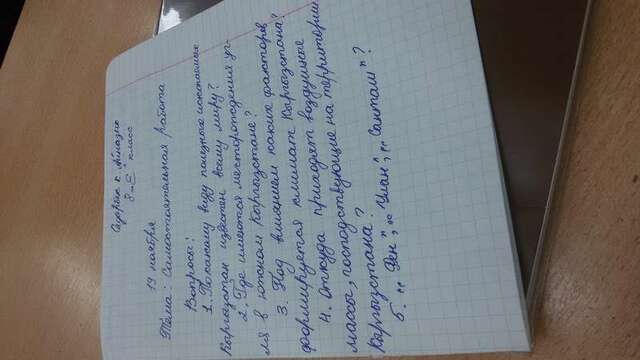 19 ноября
8 – класс
Тема: Самостоятельная работа
Вопросы:
1. По какому виду полезных ископаемых
Кыргызстан известен всему миру?
2. Где имеются месторождения уг-
ля в южном Кыргызстане?
3. Под влиянием каких факторов
формируется климат Кыргызстана?
4. Откуда приходят воздушные
массы, господствующие на территории
Кыргызстана?
5. "Фен", "Улан", "Санташ"?